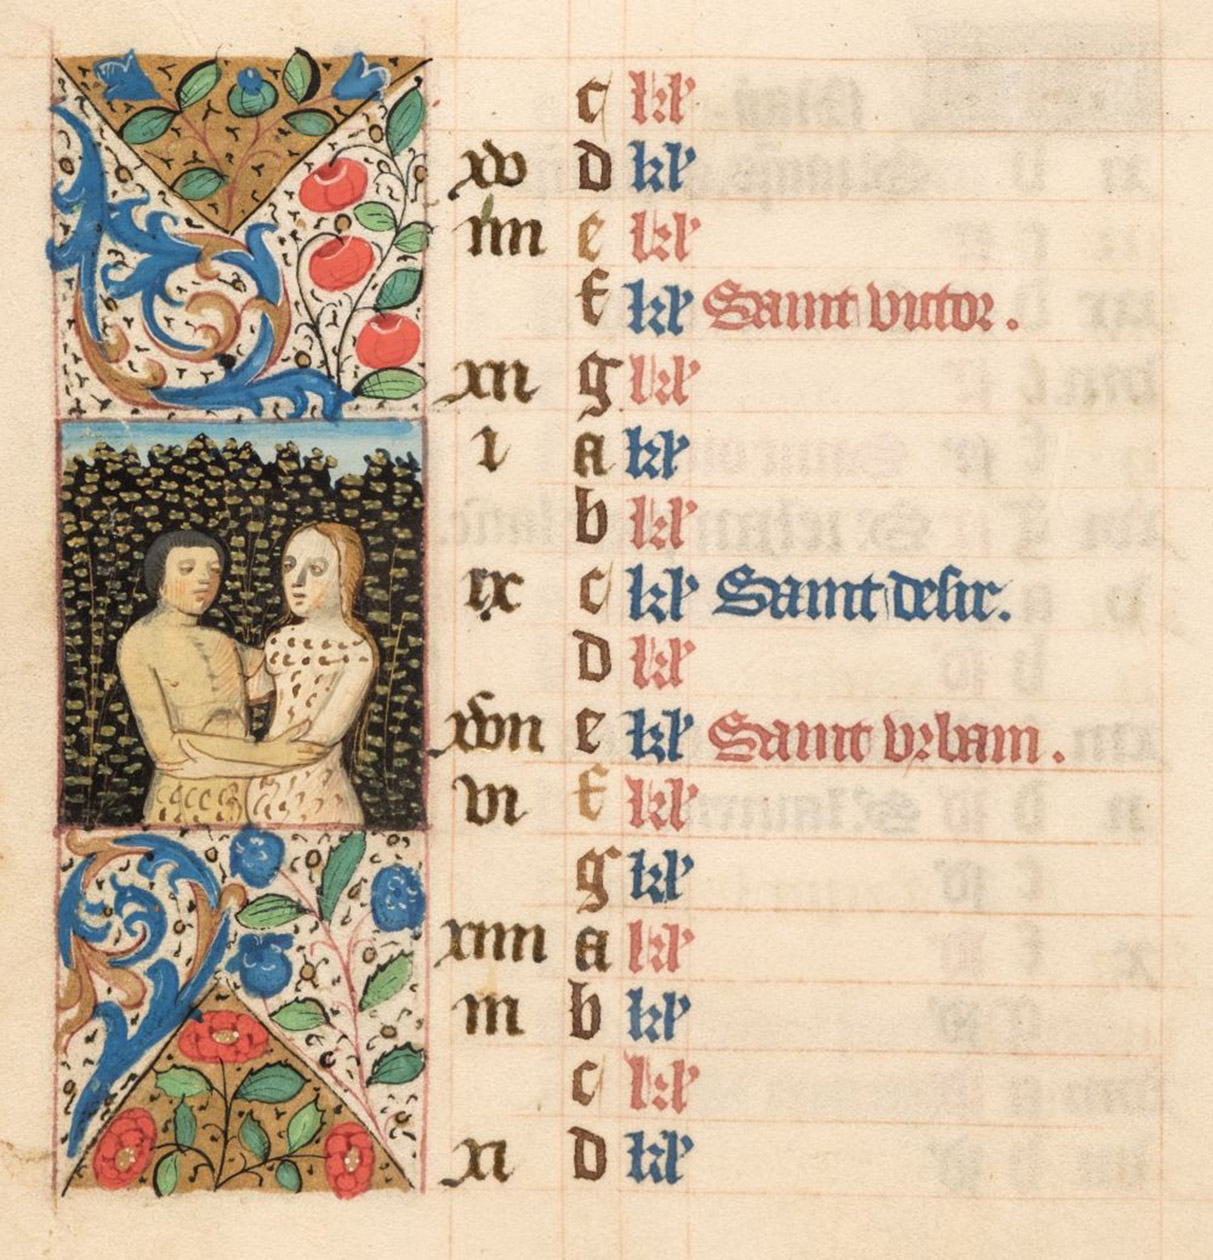 c kl
xv d kl
iiii e kl
f kl Saint victor.
xii g kl
i a kl
b kl
ix c kl Saint desir.
d kl
xvii e kl Saint vrbain.
vi f kl
g kl
xiiii a kl
iii b kl
c kl
xi d kl